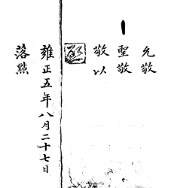 允敬
聖敬
敬以
雍正五年八月二十七日
落點